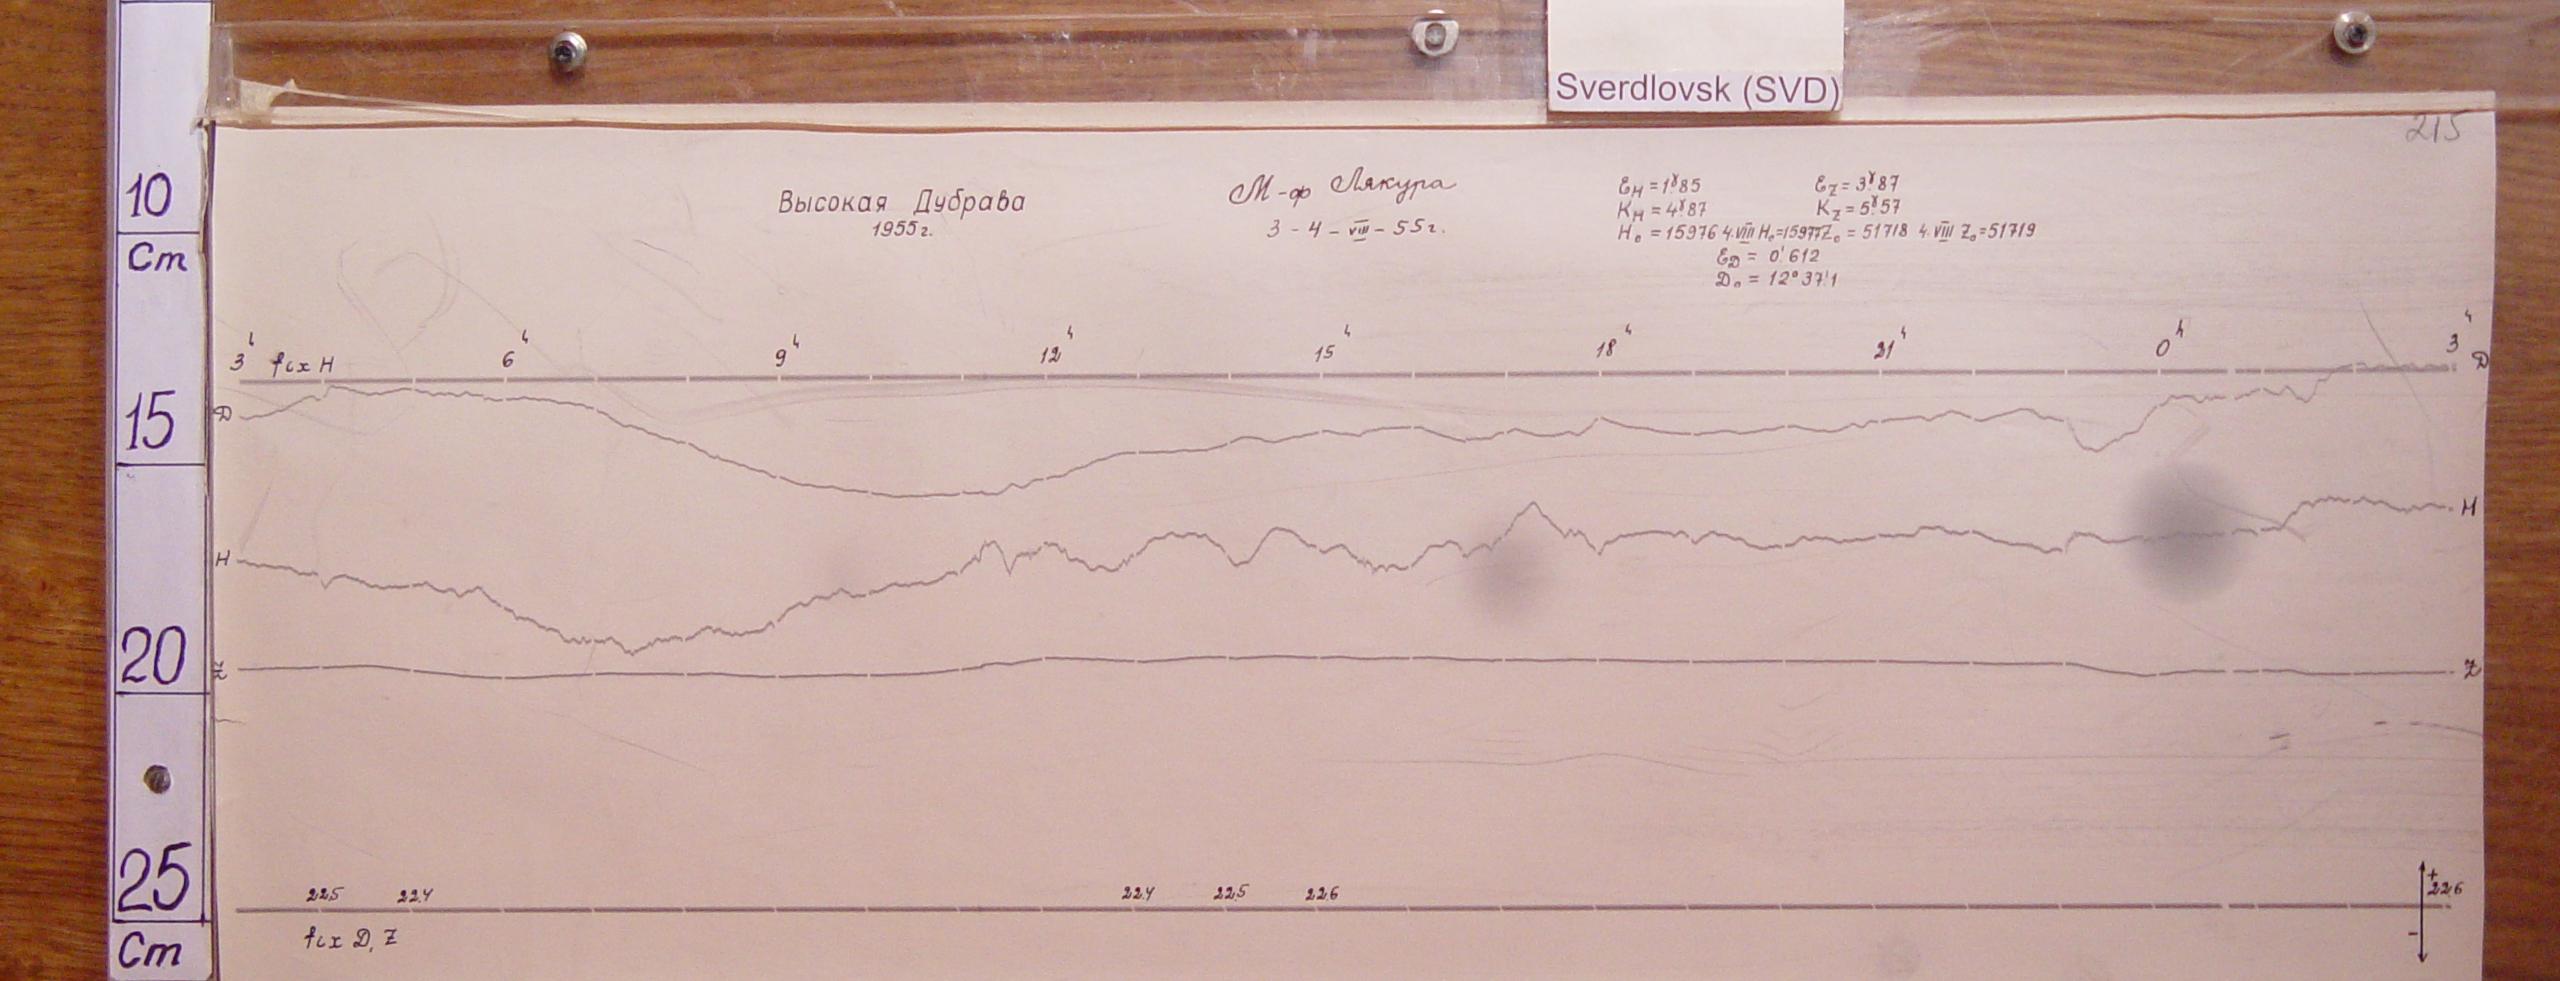 Sverdlovsk (SVD)
215
10
Cm
15
20
25
Cm
Высокая Дубрава
1955г.
М-ф Лякура
3 - 4 - VIII - 55г.
εH = 1γ85 εZ = 3γ87
KH = 4γ87 KZ = 5γ57
H₀ = 15976 4.VIII H₀=15977 Z₀ = 51718 4.VIII Z₀=51719
εD = 0'612
D₀ = 12°37'1
3ʰ fix H 6ʰ 9ʰ 12ʰ 15ʰ 18ʰ 21ʰ 0ʰ 3ʰ
D D
H H
Z Z
22,5 22,4 22,4 22,5 22,6 22,6
+
-
fix D, Z